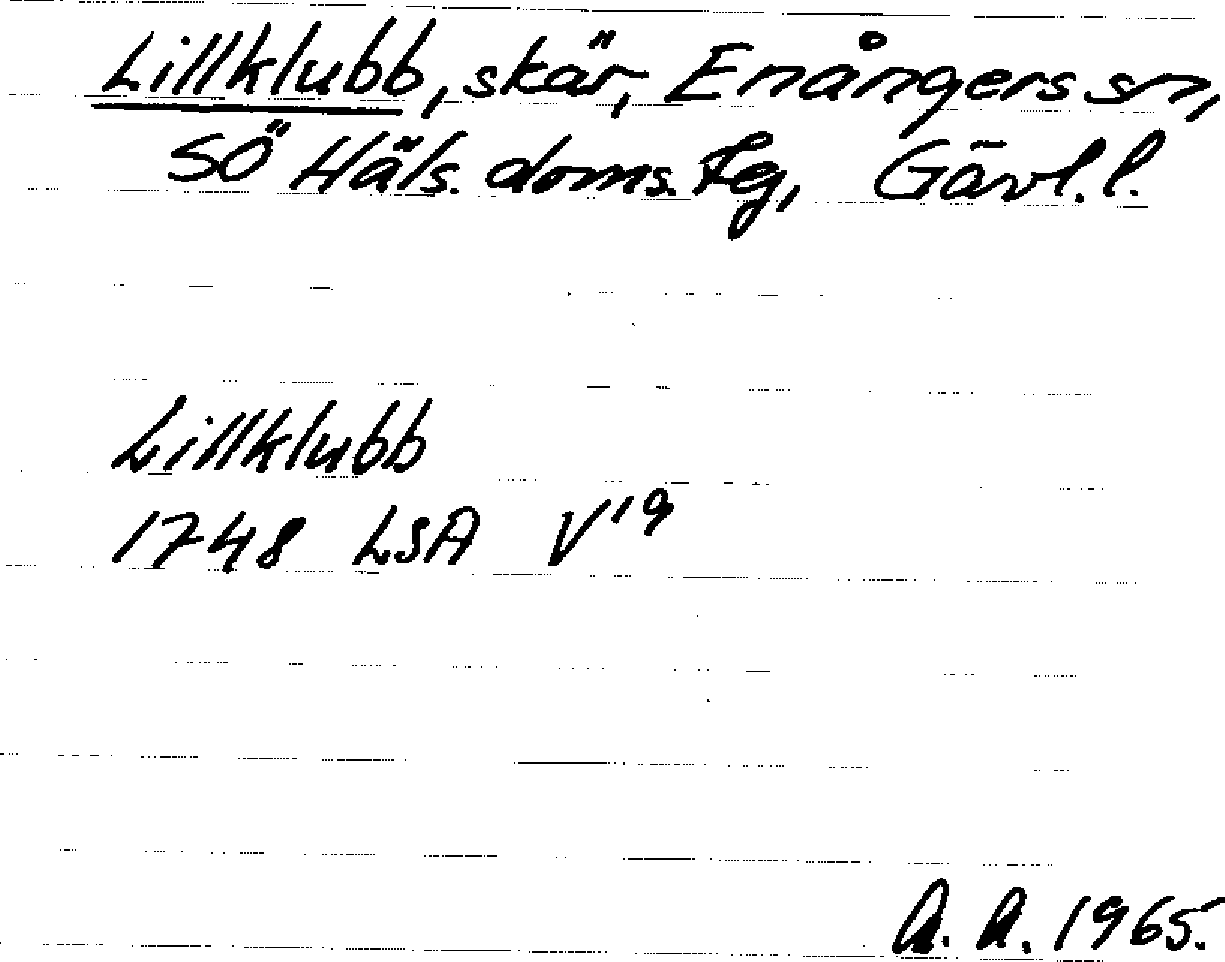 Lillklubb, skär, Enångers sn,
SÖ Häls. doms. tg, Gävl. l.
Lillklubb
1748 LSA V 19
A. A. 1965.